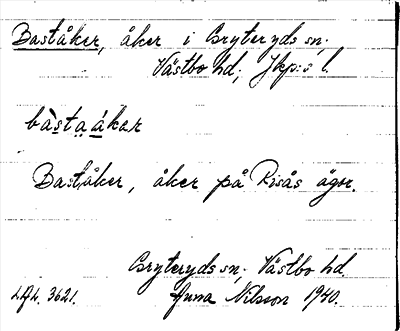 Baståker, åker i Gryteryds sn,
Västbo hd, Jkp:s l.
bàstaákar
Baståker, åker på Risås ägor.
Gryteryds sn, Västbo hd
LAL. 3621. Anna Nilsson 1940.